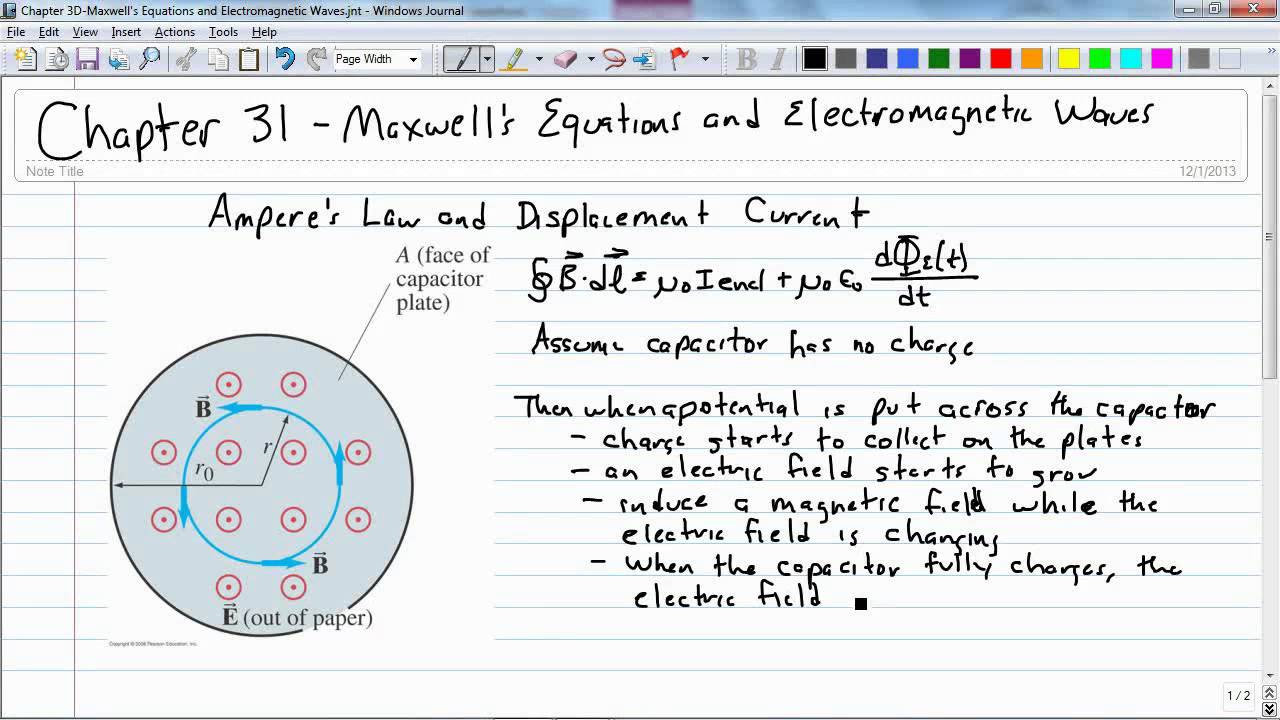 Chapter 3D-Maxwell's Equations and Electromagnetic Waves.jnt - Windows Journal
File Edit View Insert Actions Tools Help
Page Width
B I
Chapter 31 - Maxwell's Equations and Electromagnetic Waves
Note Title
12/1/2013
Ampere's Law and Displacement Current
A (face of
capacitor
plate)
∮B⃗·dl⃗ = μ₀Iencl + μ₀ε₀ dΦE(t)/dt
Assume capacitor has no charge
Then when a potential is put across the capacator
- charge starts to collect on the plates
- an electric field starts to grow
- induce a magnetic field while the
electric field is changing
- when the capacitor fully charges, the
electric field
B⃗
r
r0
B⃗
E⃗ (out of paper)
Copyright © 2008 Pearson Education, Inc.
1 / 2